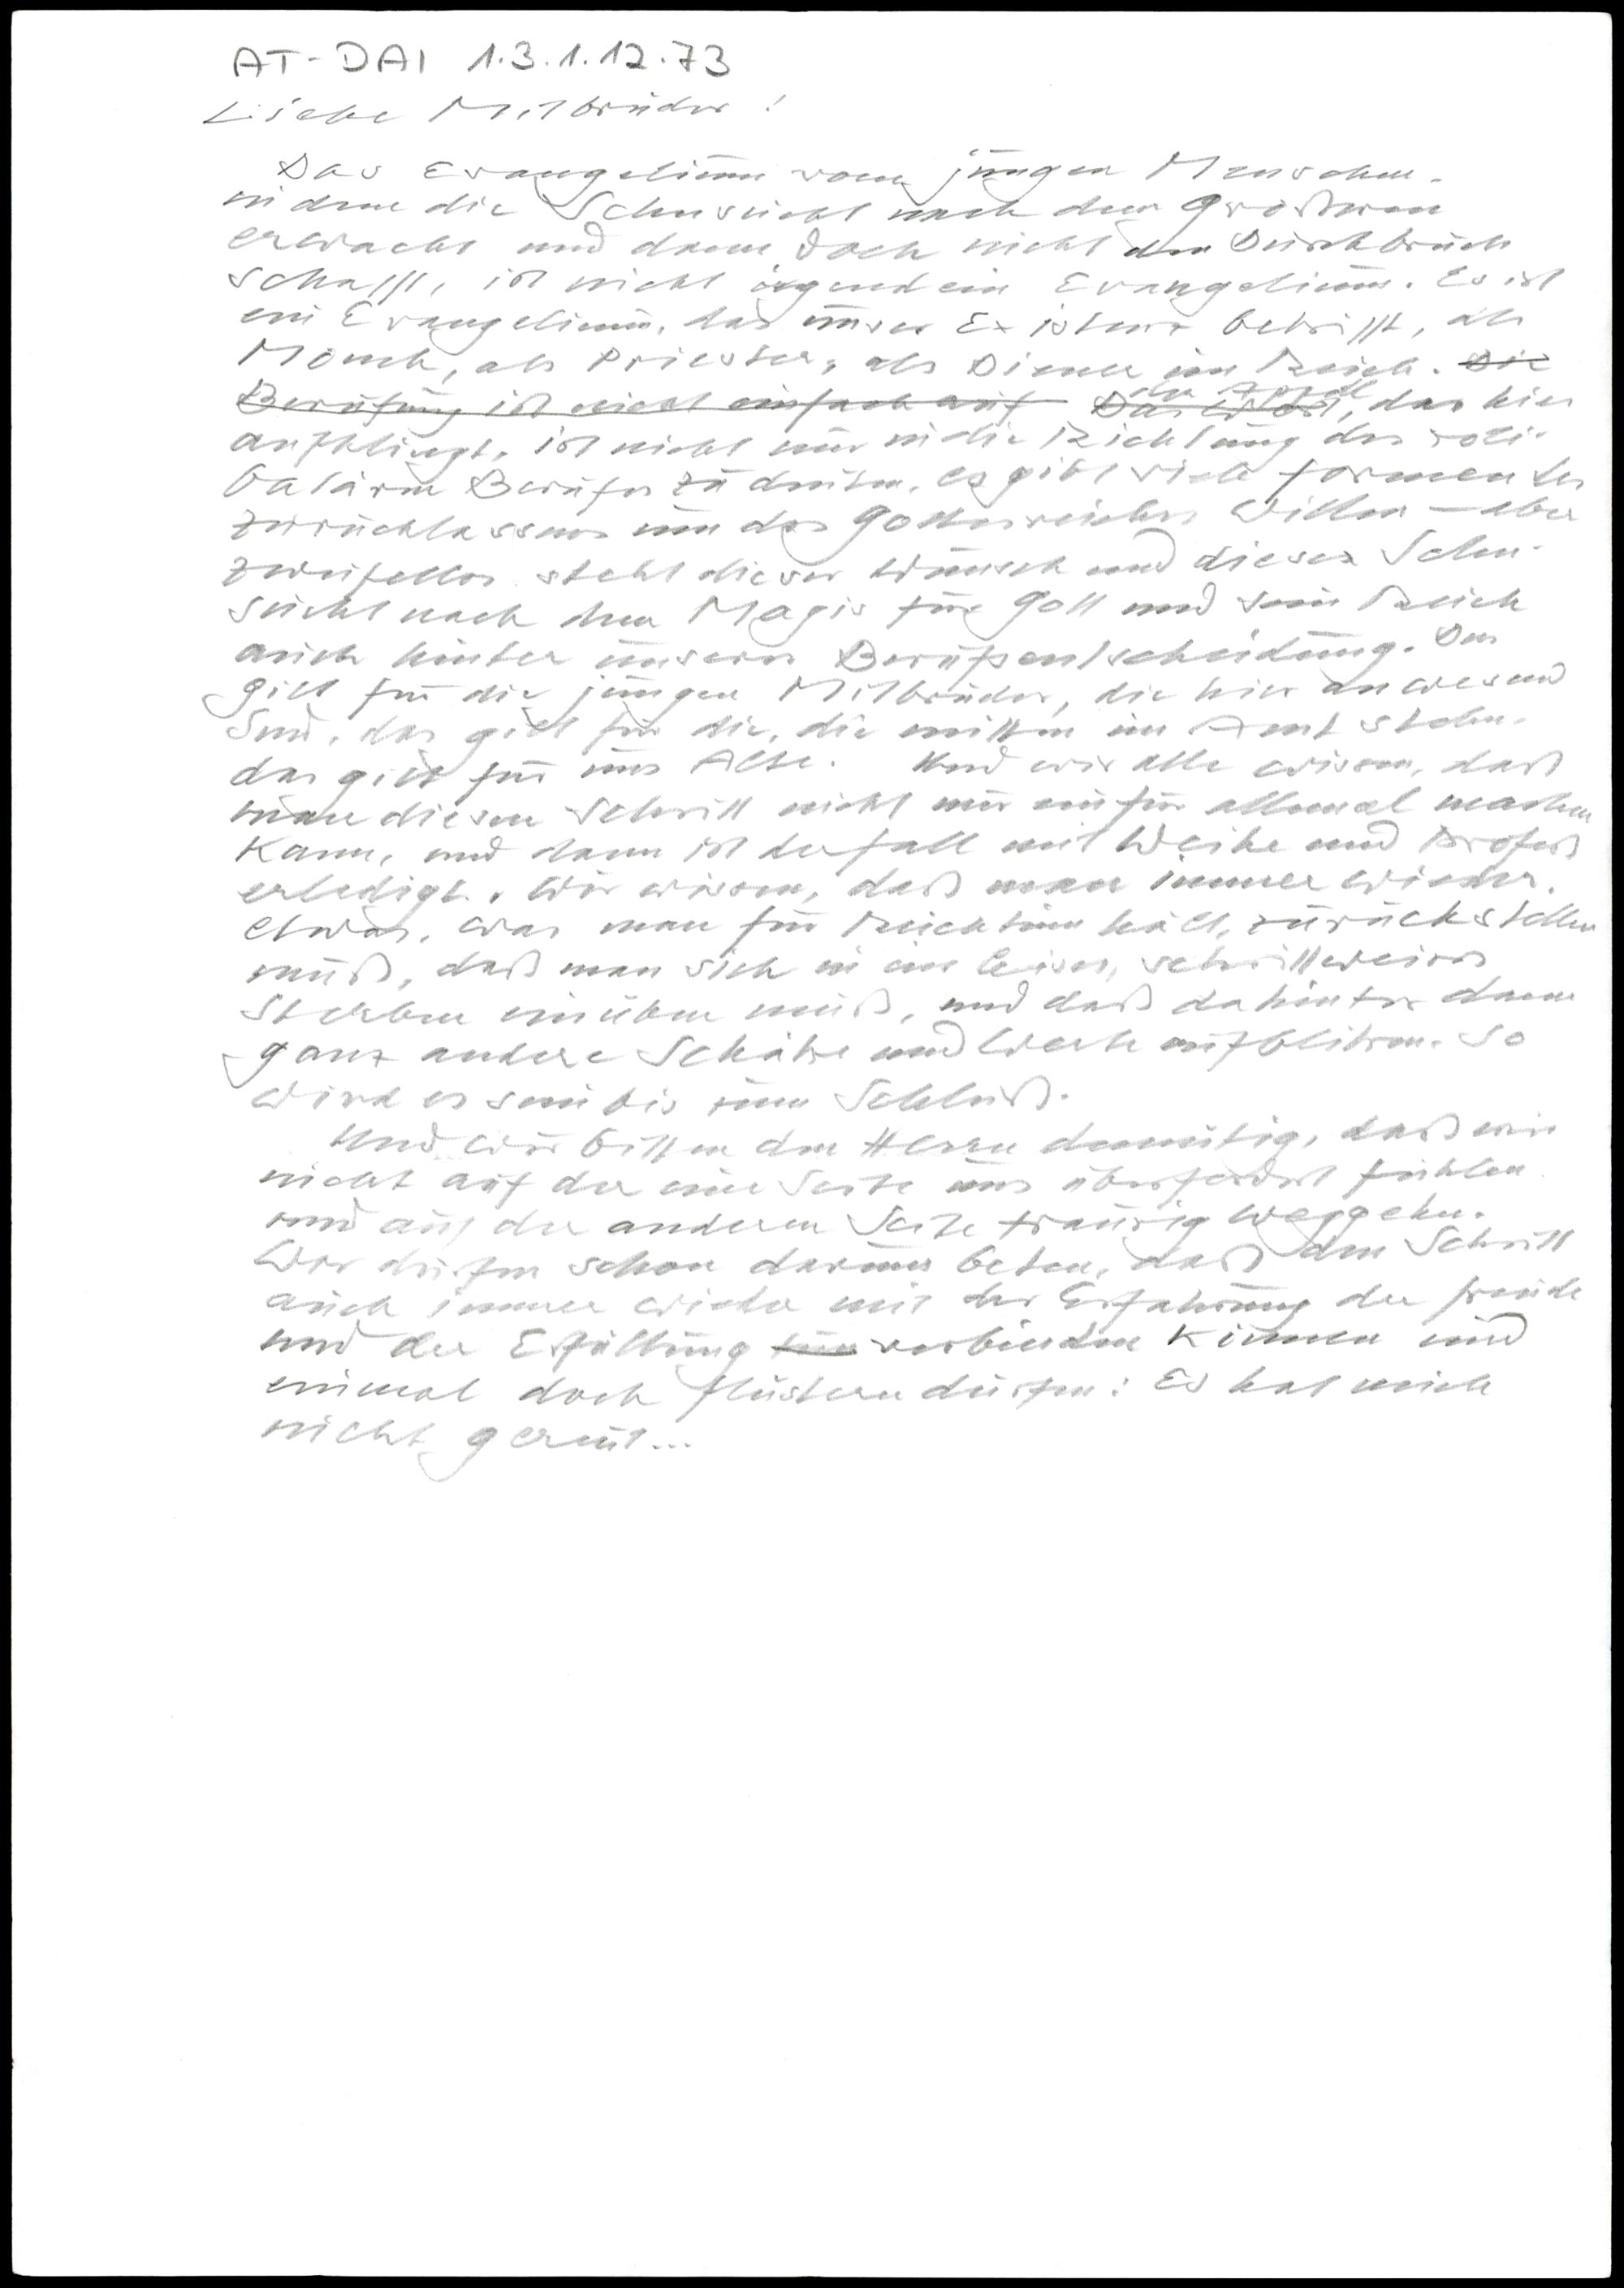 AT-DAI 1.3.1.12.73
Liebe Mitbrüder!
Das Evangelium vom jungen Menschen,
in dem die Sehnsucht nach dem Grösseren
erwacht und dann doch nicht den Durchbruch
schafft, ist nicht irgendein Evangelium. Es ist
ein Evangelium, das unser Existenz betrifft, als
Mönch, als Priester, als Diener im Reich. Die
Berufung ist nicht einfach auf Das Wort, das hier
der Appell
aufklingt, ist nicht nur in die Richtung des zöli-
batären Berufes zu deuten, es gibt viele Formen des
Zurücklassens um des Gottesreiches Willen – aber
zweifellos steht dieser Wunsch und diese Sehn-
sucht nach dem Magis für Gott und sein Reich
auch hinter unserer Berufsentscheidung. Das
gilt für die jungen Mitbrüder, die hier anwesend
sind, das gilt für die, die mitten im Amt stehn,
das gilt für uns Alte. Und wir alle wissen, daß
man diesen Schritt nicht nur ein für allemal machen
kann, und dann ist der Fall mit Weihe und Profeß
erledigt. Wir wissen, daß man immer wieder
etwas, was man für Reichtum hält, zurückstellen
muß, daß man sich in ein leises, schrittweises
Sterben einüben muß, und daß dahinter dann
ganz andere Schätze und Werte aufblitzen. So
wird es sein bis zum Schluß.
Und wir bitten den Herrn demütig, daß wir
nicht auf der eine Seite uns überfordert fühlen
und auf der anderen Seite traurig weggehn.
Wir dürfen schon darum beten, daß den Schritt
auch immer wieder mit der Erfahrung der Freude
und der Erfüllung verbinden können und
einmal doch flüstern dürfen: Es hat mich
nicht gereut...